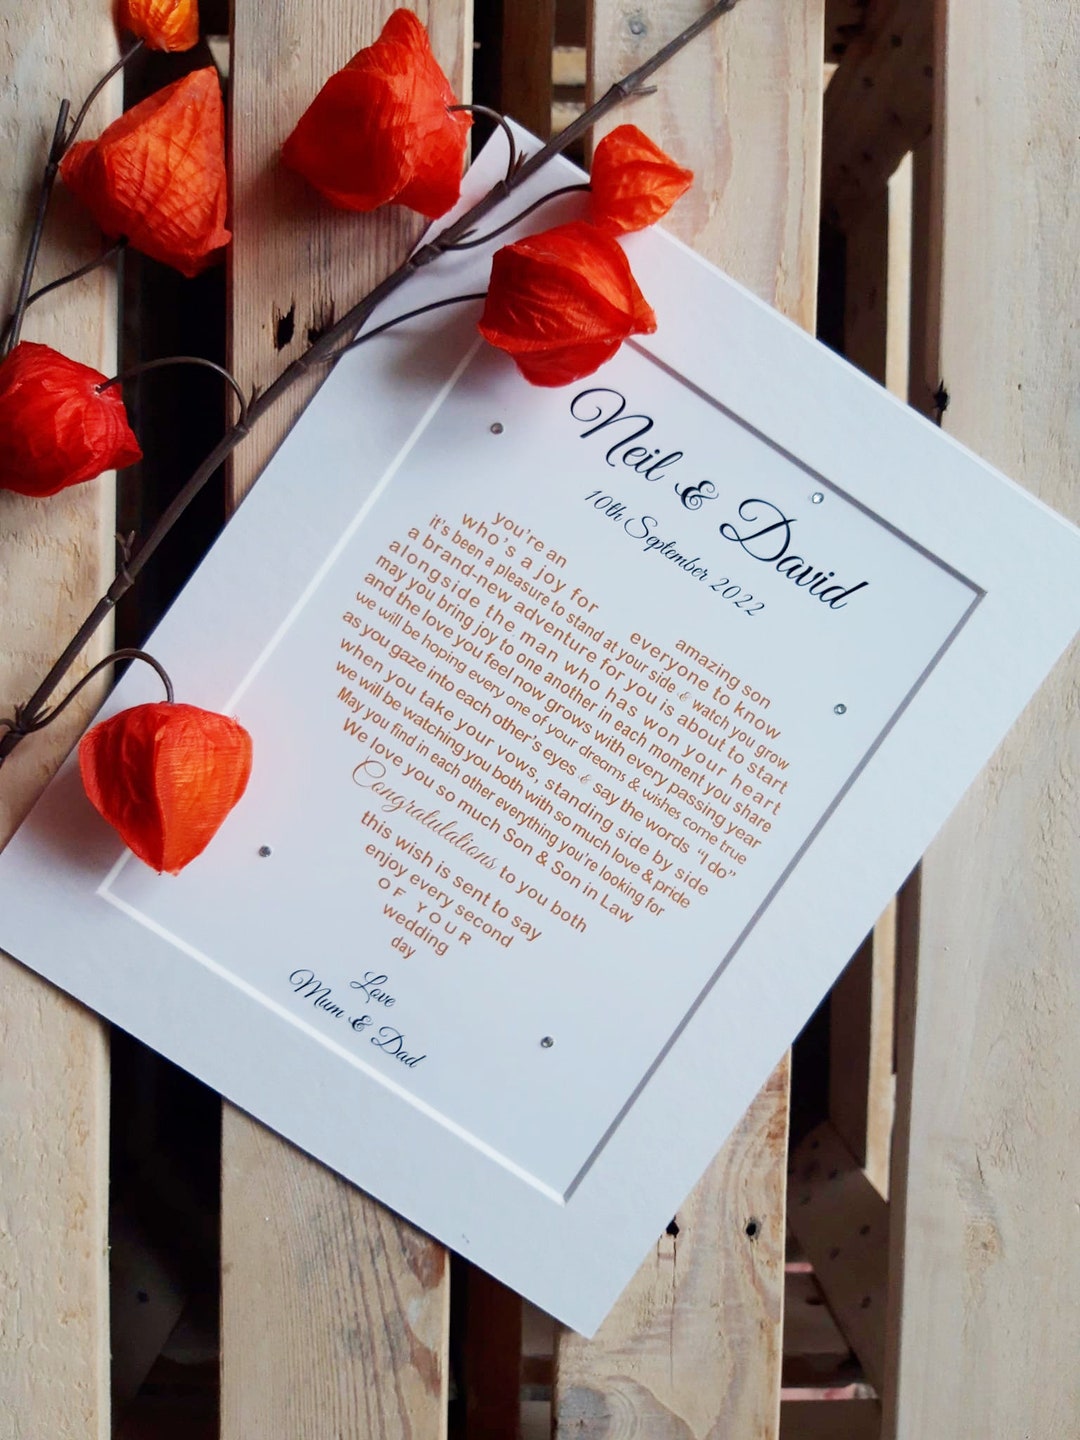 Neil & David
10th September 2022
you're an amazing son
who's a joy for everyone to know
it's been a pleasure to stand at your side & watch you grow
a brand-new adventure for you is about to start
alongside the man who has won your heart
may you bring joy to one another in each moment you share
and the love you feel now grows with every passing year
we will be hoping every one of your dreams & wishes come true
as you gaze into each other's eyes & say the words "I do"
when you take your vows, standing side by side
we will be watching you both with so much love & pride
May you find in each other everything you're looking for
We love you so much Son & Son in Law
Congratulations to you both
this wish is sent to say
enjoy every second
OF YOUR
wedding
day
Love
Mum & Dad